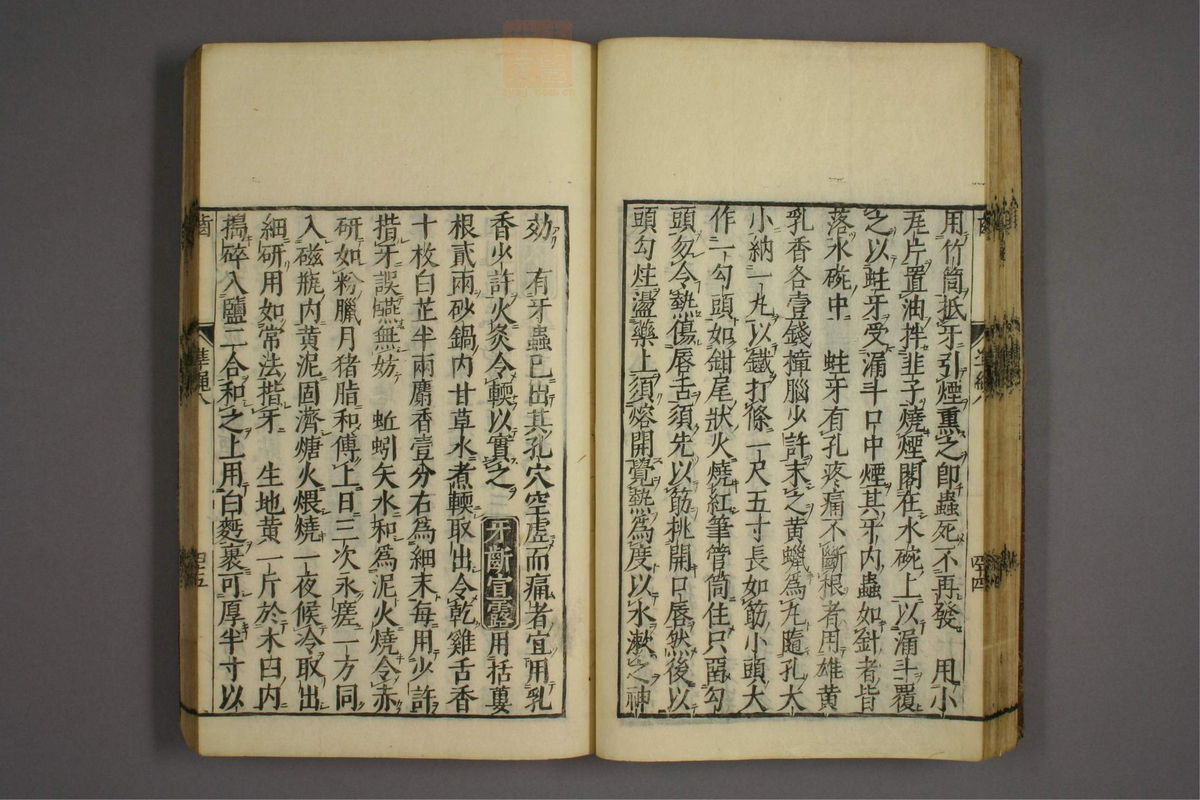 用竹筒抵牙引煙熏之卽蟲死不再發　用小
瓦片置油拌韭子燒煙閣在水碗上以漏斗覆
之以蛀牙受漏斗口中煙其牙內蟲如針者皆
落水碗中　蛀牙有孔疼痛不斷根者用雄黃
乳香各壹錢撞腦少許末之黃蠟為丸隨孔大
小納一丸以鐵打條一尺五寸長如筯小頭大
作一勾頭如鉗尾狀火燒紅筆管筒住只留勾
頭勿令熱傷唇舌須先以筯挑開口唇然後以
頭勾炷盪藥上須熔開覺熱為度以水漱之神
效　有牙蟲已出其孔穴空虛而痛者宜用乳
香少許火灸令輭以實之　牙齗宣露　用栝蔞
根貳兩砂鍋內甘草水煮輭取出令乾雞舌香
十枚白芷半兩麝香壹分右為細末每用少許
揩牙誤嚥無妨　蚯蚓矢水和為泥火燒令赤
研如粉臘月猪脂和傅上日三次永瘥一方同
入磁瓶內黃泥固濟煻火煨燒一夜候冷取出
細研用如常法揩牙　生地黃一斤於木臼內
搗碎入鹽二合和之上用白麪裹可厚半寸以
齒
準繩八
四五